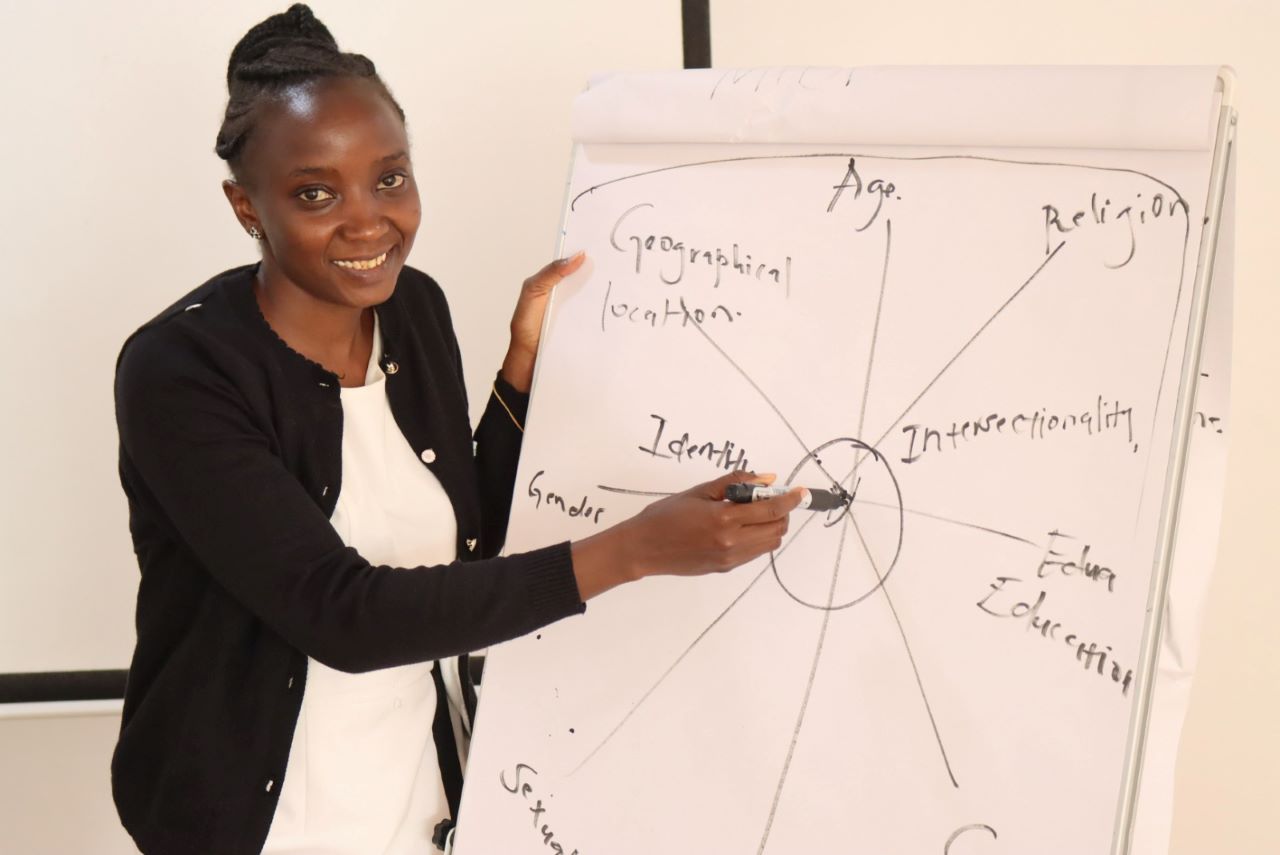 Age.
Religion
Geographical
location.
Intersectionality,
Identity
Gender
Edua
Education
Sexual